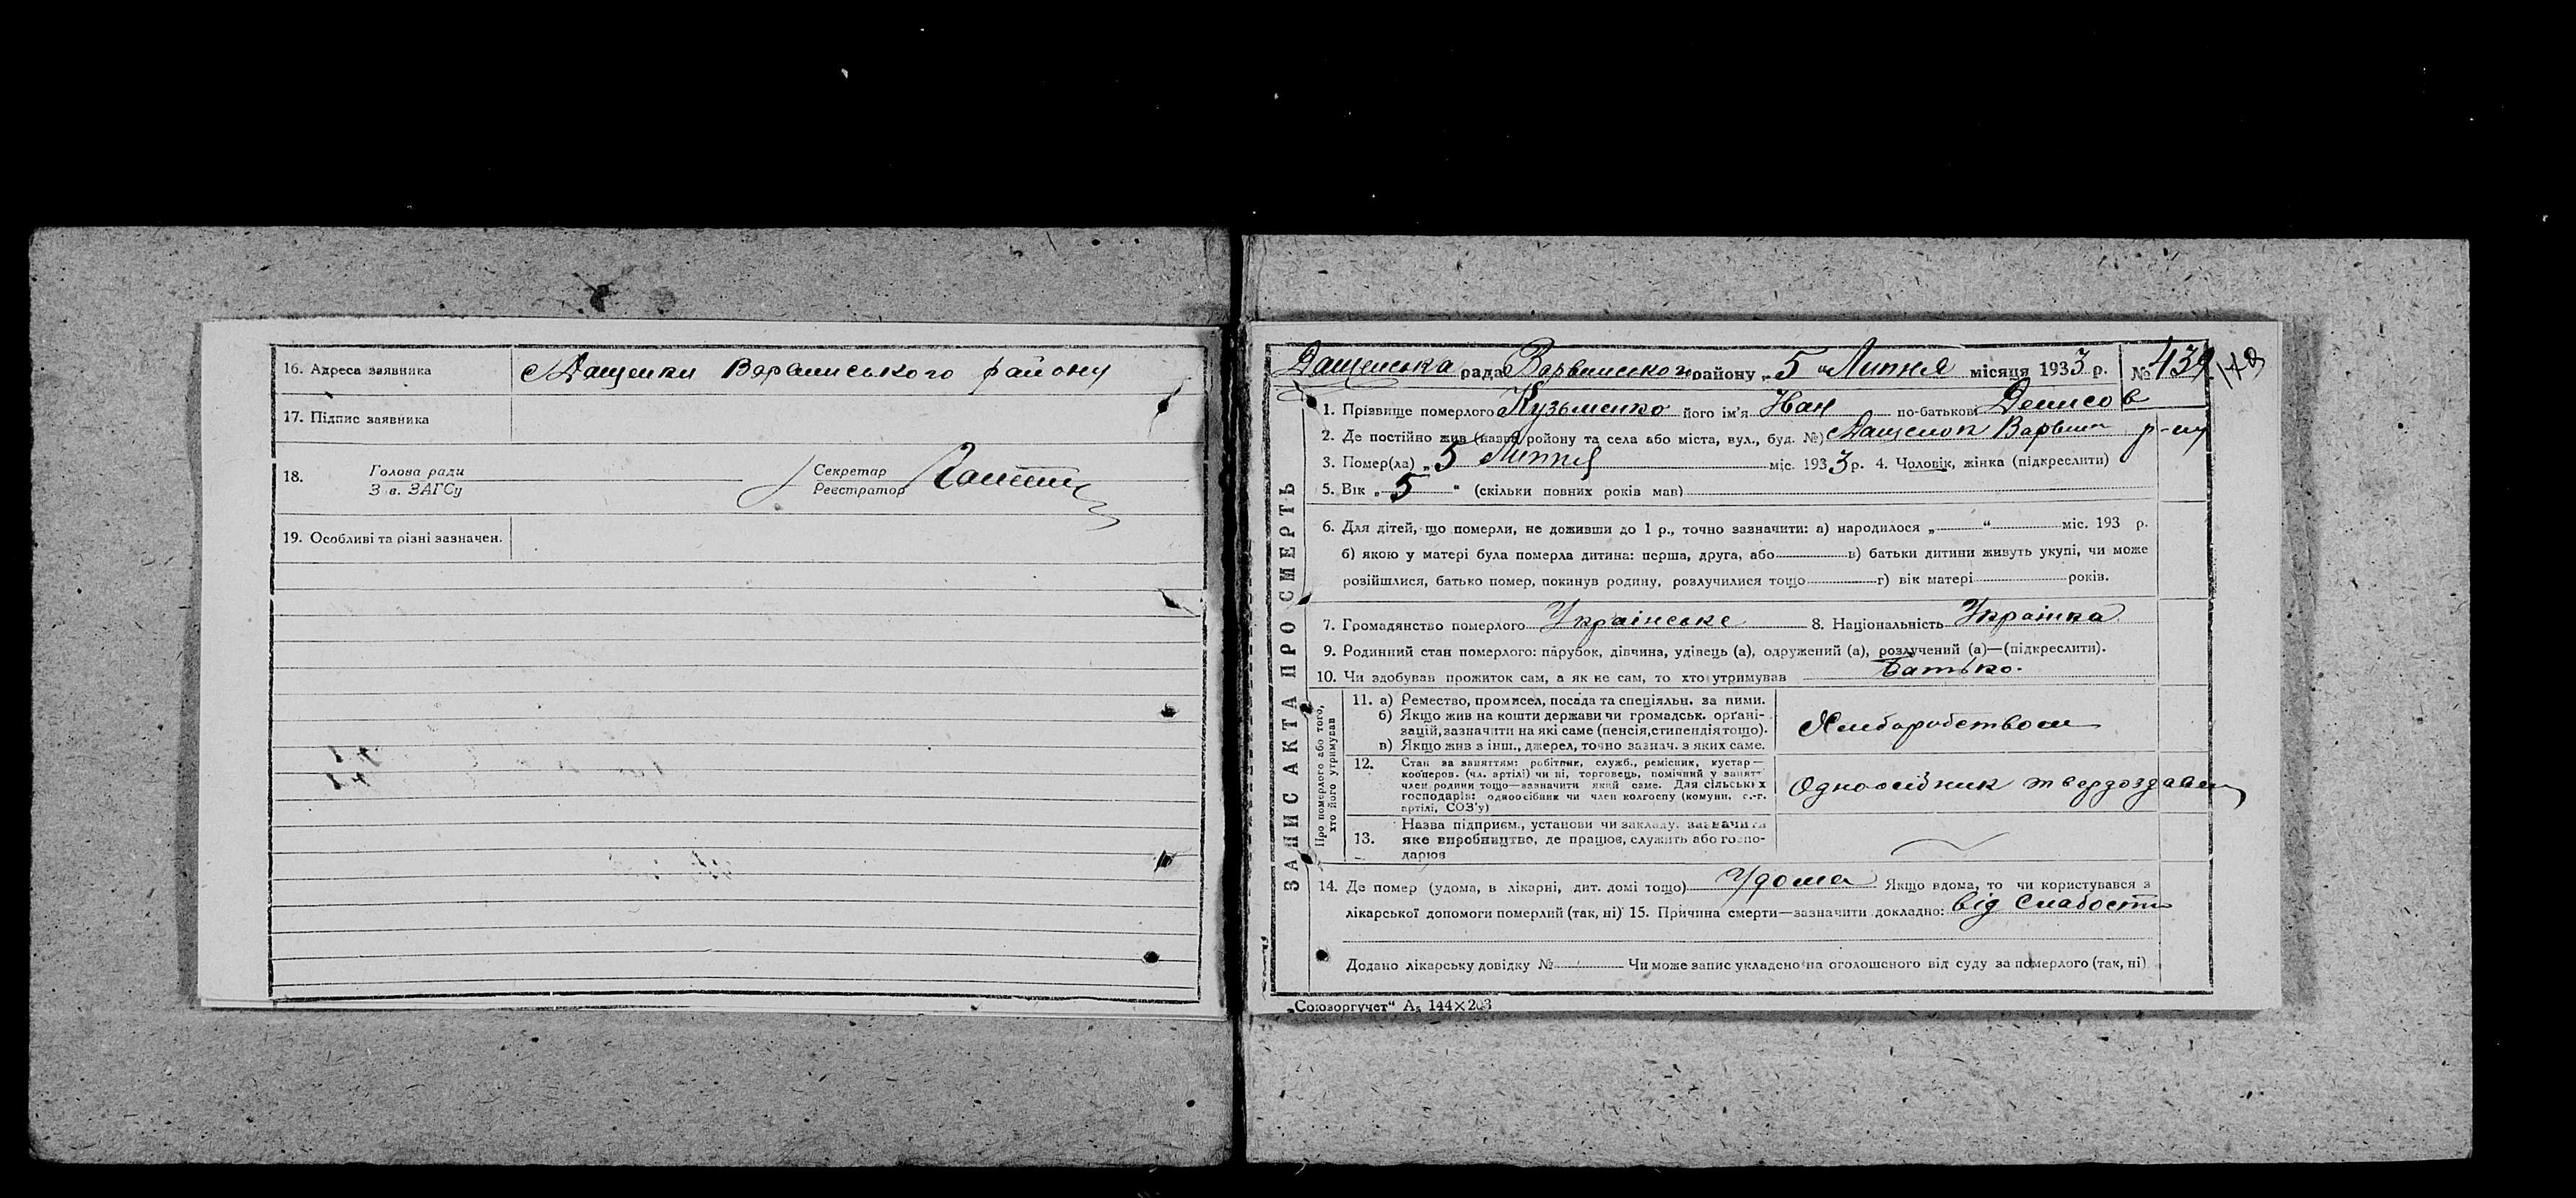 16. Адреса заявника с Дащенки Варвинського району
17. Підпис заявника
18. Голова ради Секретар
З в. ЗАГСу Реєстратор
19. Особливі та різні зазначен.
ЗАПИС АКТА ПРО СМЕРТЬ
Дащенська рада Варвинського району „ 5 " Липня місяця 1933 р. № 439
1. Прізвище померлого Кузьменко його ім'я Іван по-батькові Денисов
2. Де постійно жив (назва району та села або міста, вул., буд. №) с Дащенок Варвин р-ну
3. Помер(ла) „ 5 Липня міс. 1933 р. 4. Чоловік, жінка (підкреслити)
5. Вік „ 5 " (скільки повних років мав)
6. Для дітей, що померли, не доживши до 1 р., точно зазначити: а) народилося „ " міс. 193 р.
б) якою у матері була померла дитина: перша, друга, або в) батьки дитини живуть укупі, чи може
розійшлися, батько помер, покинув родину, розлучилися тощо г) вік матері років.
7. Громадянство померлого Українське 8. Національність Українка
9. Родинний стан померлого: парубок, дівчина, удівець (а), одружений (а), розлучений (а)—(підкреслити).
10. Чи здобував прожиток сам, а як не сам, то хто утримував Батько.
Про померлого або того,
хто його утримував
11. а) Ремество, промисел, посада та спеціяльн. за ними.
б) Якщо жив на кошти держави чи громадськ. органі-
зацій, зазначити на які саме (пенсія, стипендія тощо).
в) Якщо жив з інш., джерел, точно зазнач. з яких саме.
Хліборобством
12. Стан за заняттям: робітник, служб., ремісник, кустар—
кооперов. (чл. артілі) чи ні, торговець, помічний у занятт
член родини тощо—зазначити який саме. Для сільських
господарів: одноосібник чи член колгоспу (комуни, с.-г.
артілі, СОЗ'у)
Одноосібник твердоздавец
13. Назва підприєм., установи чи закладу, зазначити
яке виробництво, де працює, служить або госпо-
дарює
14. Де помер (удома, в лікарні, дит. домі тощо) Удома Якщо вдома, то чи користувався з
лікарської допомоги померлий (так, ні) 15. Причина смерти—зазначити докладно: від Слабости
Додано лікарську довідку № Чи може запис укладено на оголошеного від суду за померлого (так, ні)
„Союзоргучет" А₅ 144×203